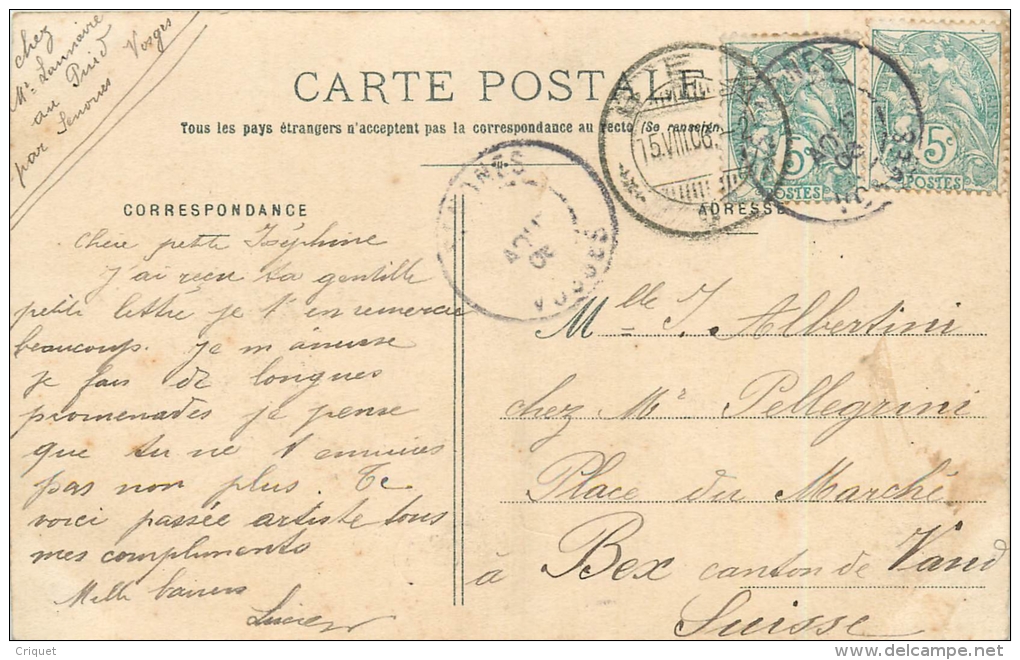 chez
Mr Lannaire
au Puid
par Senones Vosges
CARTE POSTALE
Tous les pays étrangers n'acceptent pas la correspondance au recto (Se renseign
CORRESPONDANCE
ADRESSE
Chère petite Joséphine
J'ai reçu ta gentille
petite lettre je t'en remercie
beaucoup. Je m'amuse
je fais de longues
promenades je pense
que tu ne t'ennuies
pas non plus. Te
voici passée artiste tous
mes compliments
Mille baisers
Mlle J. Albertini
chez Mr Pellegrini
Place du Marché
à Bex canton de Vaud
Suisse
15.VIII.06
AOUT
VOSGES
5c
POSTES
5c
POSTES
© Criquet
http://www.delcampe.net